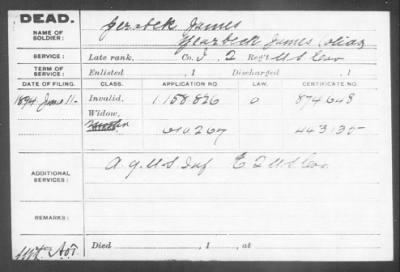 DEAD.
NAME OF SOLDIER: Jerabek James
Yearbeck James, alias
SERVICE: Late rank, Co. I, 2 Reg't U S Cav
TERM OF SERVICE: Enlisted , 1 Discharged , 1
DATE OF FILING. CLASS. APPLICATION NO. LAW. CERTIFICATE NO.
1894 June 11 Invalid, 1158826 0 874648
Widow, 610267 443135
ADDITIONAL SERVICES: E 2 U S Cav
REMARKS:
Died , 1 , at